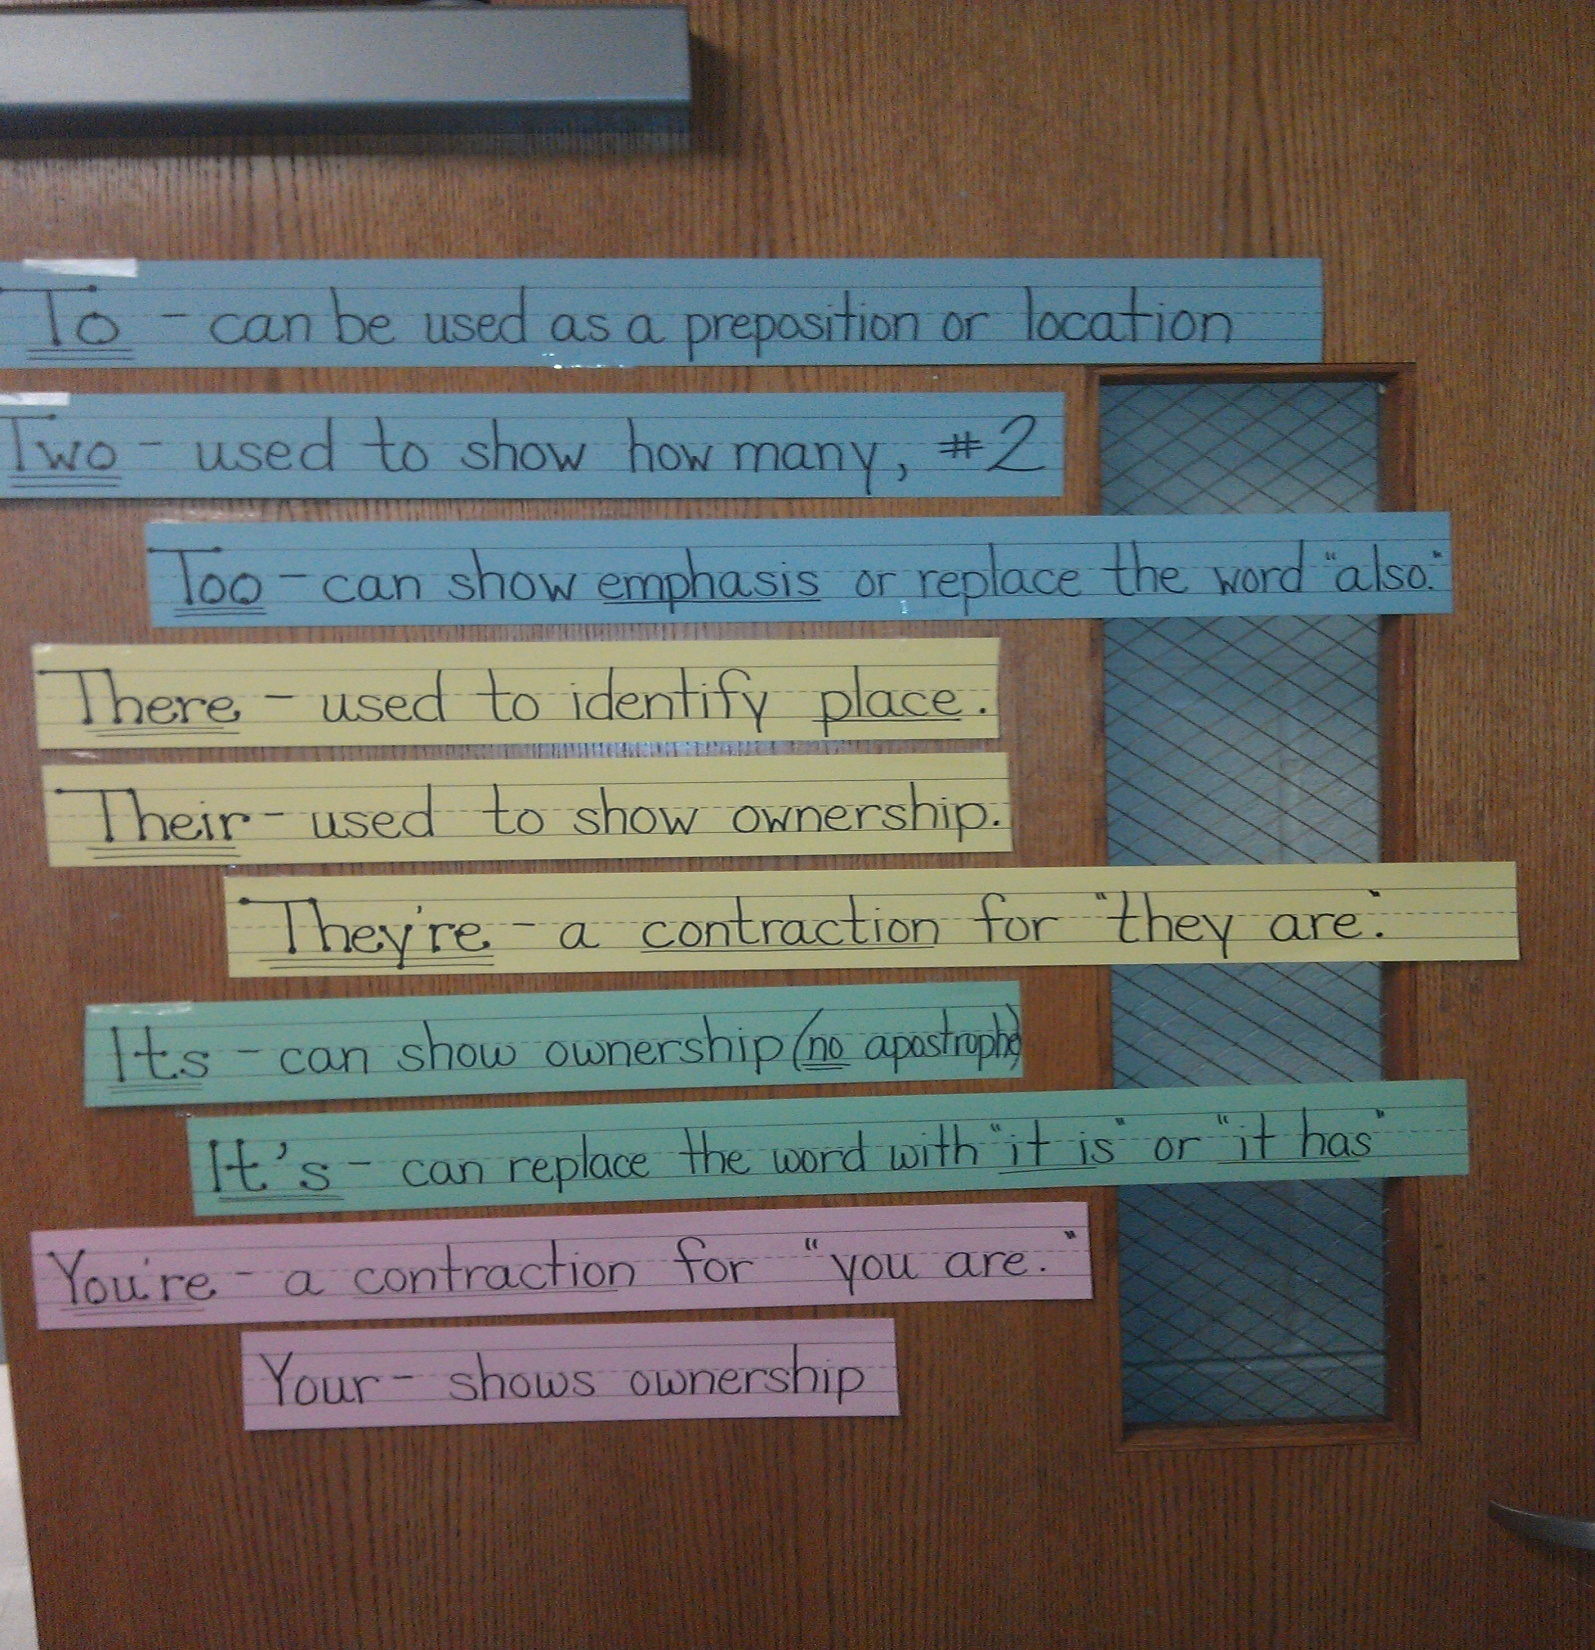 To - can be used as a preposition or location
Two - used to show how many, #2
Too - can show emphasis or replace the word "also."
There - used to identify place.
Their - used to show ownership.
They're - a contraction for "they are."
Its - can show ownership (no apostrophe)
It's - can replace the word with "it is" or "it has"
You're - a contraction for "you are."
Your - shows ownership